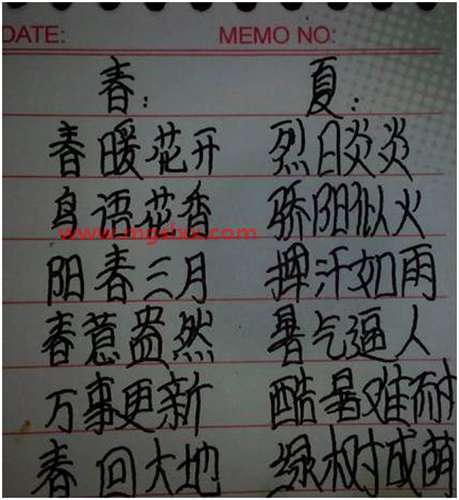 DATE: MEMO NO:
春： 夏：
春暖花开 烈日炎炎
鸟语花香 骄阳似火
阳春三月 挥汗如雨
春意盎然 暑气逼人
万事更新 酷暑难耐
春回大地 绿树成